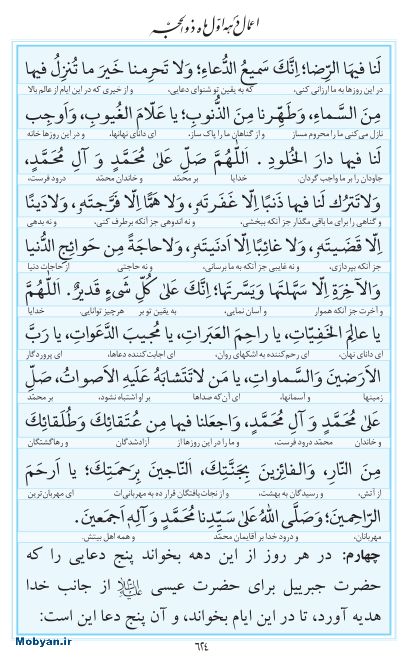 اعمال دهه اوّل ماه ذوالحجّه
لَنا فيهَا الرِّضا؛ اِنَّكَ سَميعُ الدُّعاءِ؛ وَلا تَحرِمنا خَيرَ ما تُنزِلُ فيها
در این روزها به ما ارزانی کنی، که به یقین تو شنوای دعایی، و از خیری که در این ایام از عالم بالا
مِنَ السَّماءِ، وَطَهِّرنا مِنَ الذُّنوبِ؛ يا عَلّامَ الغُيوبِ، وَاَوجِب
نازل می‌کنی ما را محروم مساز و از گناهان ما را پاک ساز، ای دانای نهانها، و در این روزها خانه
لَنا فيها دارَ الخُلودِ. اَللّٰهُمَّ صَلِّ عَلىٰ مُحَمَّدٍ وَ آلِ مُحَمَّدٍ،
جاودان را بر ما واجب گردان. خدایا بر محمّد و خاندان محمّد درود فرست،
وَلاتَترُك لَنا فيها ذَنبًا اِلّا غَفَرتَهٗ، وَلا هَمًّا اِلّا فَرَّجتَهٗ، وَلادَينًا
و گناهی را برای ما باقی مگذار جز آنکه ببخشی، و نه اندوهی جز آنکه برطرف کنی، و نه بدهی
اِلّا قَضَيتَهٗ، وَلا غائِبًا اِلّا اَدنَيتَهٗ، وَلاحاجَةً مِن حَوائِجِ الدُّنيا
جز آنکه بپردازی، و نه غایبی جز آنکه به ما برسانی، و نه حاجتی از حاجات دنیا
وَالآخِرَةِ اِلّا سَهَّلتَها وَيَسَّرتَها؛ اِنَّكَ عَلىٰ كُلِّ شَىءٍ قَديرٌ. اَللّٰهُمَّ
و آخرت جز آنکه هموار و آسان نمایی، به یقین تو بر هر چیز توانایی. خدایا
يا عالِمَ الخَفِيّاتِ، يا راحِمَ العَبَراتِ، يا مُجيبَ الدَّعَواتِ، يا رَبَّ
ای دانای نهان، ای رحم کننده به اشکهای روان، ای اجابت کننده دعاها، ای پروردگار
الاَرَضينَ وَالسَّماواتِ، يا مَن لاتَتَشابَهُ عَلَيهِ الاَصواتُ، صَلِّ
زمینها و آسمانها، ای آن که صداها بر او اشتباه نشود، بر محمّد
عَلىٰ مُحَمَّدٍ وَ آلِ مُحَمَّدٍ، وَاجعَلنا فيها مِن عُتَقائِكَ وَطُلَقائِكَ
و خاندان محمّد درود فرست، و ما را در این روزها از آزادشدگان و رهاگشتگان
مِنَ النّارِ، وَالفائِزينَ بِجَنَّتِكَ، النّاجينَ بِرَحمَتِكَ؛ يا اَرحَمَ
از آتش، و رسیدگان به بهشت، و از نجات یافتگان قرار ده به مهربانی‌ات ای مهربان‌ترین
الرّاحِمينَ؛ وَصَلَّى اللّٰهُ عَلىٰ سَيِّدِنا مُحَمَّدٍ وَ آلِهٖ اَجمَعينَ.
مهربانان، و درود خدا بر آقایمان محمّد و همه اهل بیتش.
چهارم: در هر روز از این دهه بخواند پنج دعایی را که
حضرت جبرییل برای حضرت عیسی علیه‌السلام از جانب خدا
هدیه آورد، تا در این ایام بخواند، و آن پنج دعا این است:
۶۲۴
Mobyan.ir